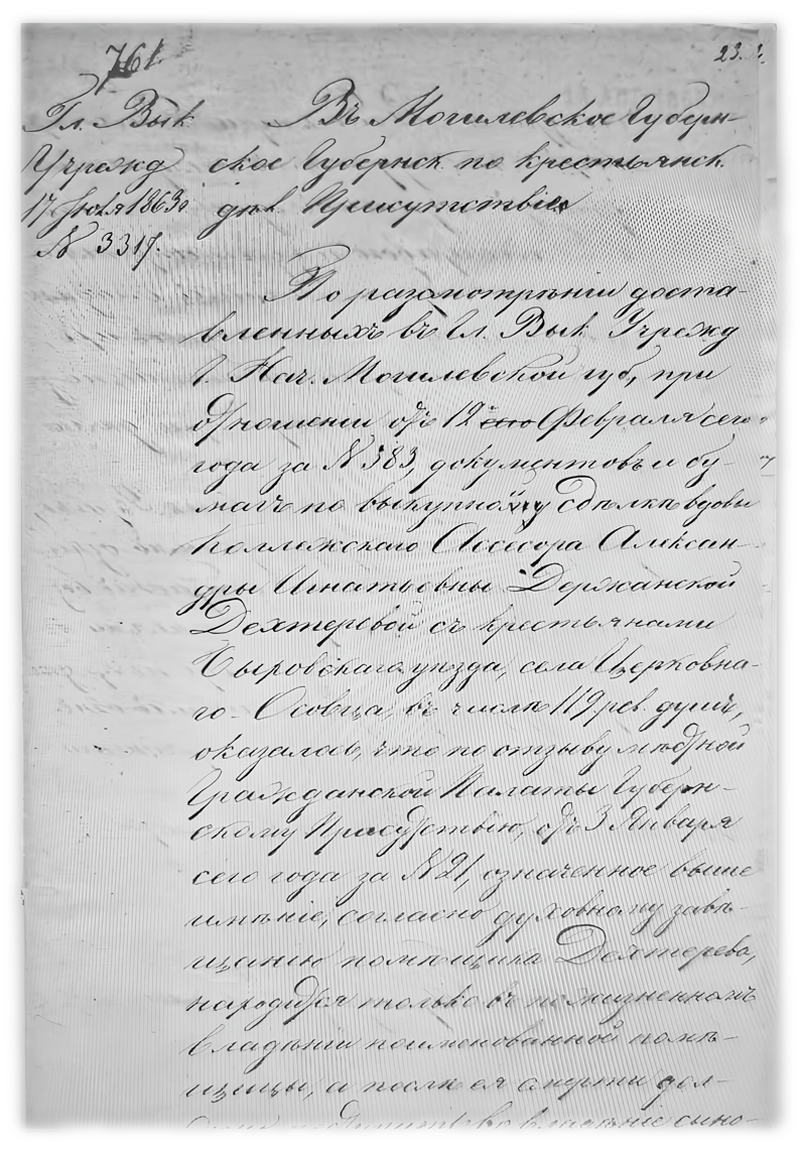 761.
23.
Гл. Вык.
Учрежд
17 Июля 1863
N 3317.
Въ Могилевское Губерн-
ское Губернск. по крестьянск.
дѣл. Присутствіе
По разсмотрѣніи доста-
вленныхъ въ Гл. Вык. Учрежд
Г. Нач. Могилевской губ, при
отношеніи отъ 12 Февраля сего
года за N 383, документовъ и бу-
магъ по выкупной сдѣлкѣ вдовы
Коллежскаго Ассесора Алексан-
дры Игнатьевны Держанской
Дехтеревой съ крестьянами
Быховскаго уѣзда, села Церковна-
го-Осовца, въ числѣ 119 рев. душъ,
оказалось, что по отзыву мѣстной
Гражданской Палаты Губерн-
скому Присутствію, отъ 3 Января
сего года за N 21, означенное выше
имѣніе, согласно духовному завѣ-
щанію помѣщика Дехтерева,
находится только въ пожизненномъ
владѣніи поименованной помѣ-
щицы, а послѣ ея смерти дол-
во владѣніе сыно-